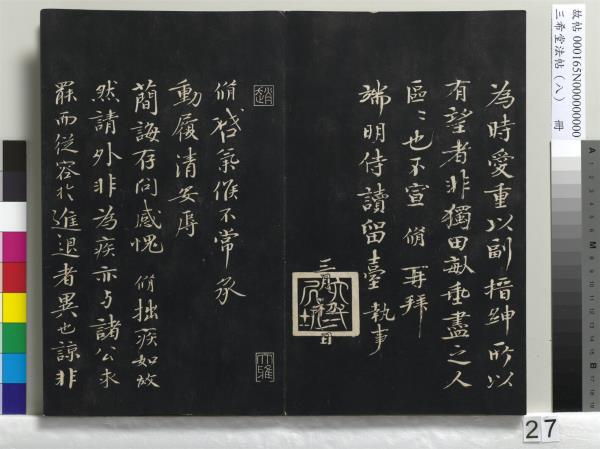 為時愛重以副搢紳所以
有望者非獨田畝垂盡之人
區〻也不宣 脩 再拜
端明侍讀留臺 執事
三月 日
脩啓氣候不常承
動履清安辱
蕳誨存問感愧 脩拙疾如故
然請外非為疾亦与諸公求
罷而從容於進退者異也諒非
趙
大雅
故帖 000165N000000000
三希堂法帖(八) 冊
27
A
B